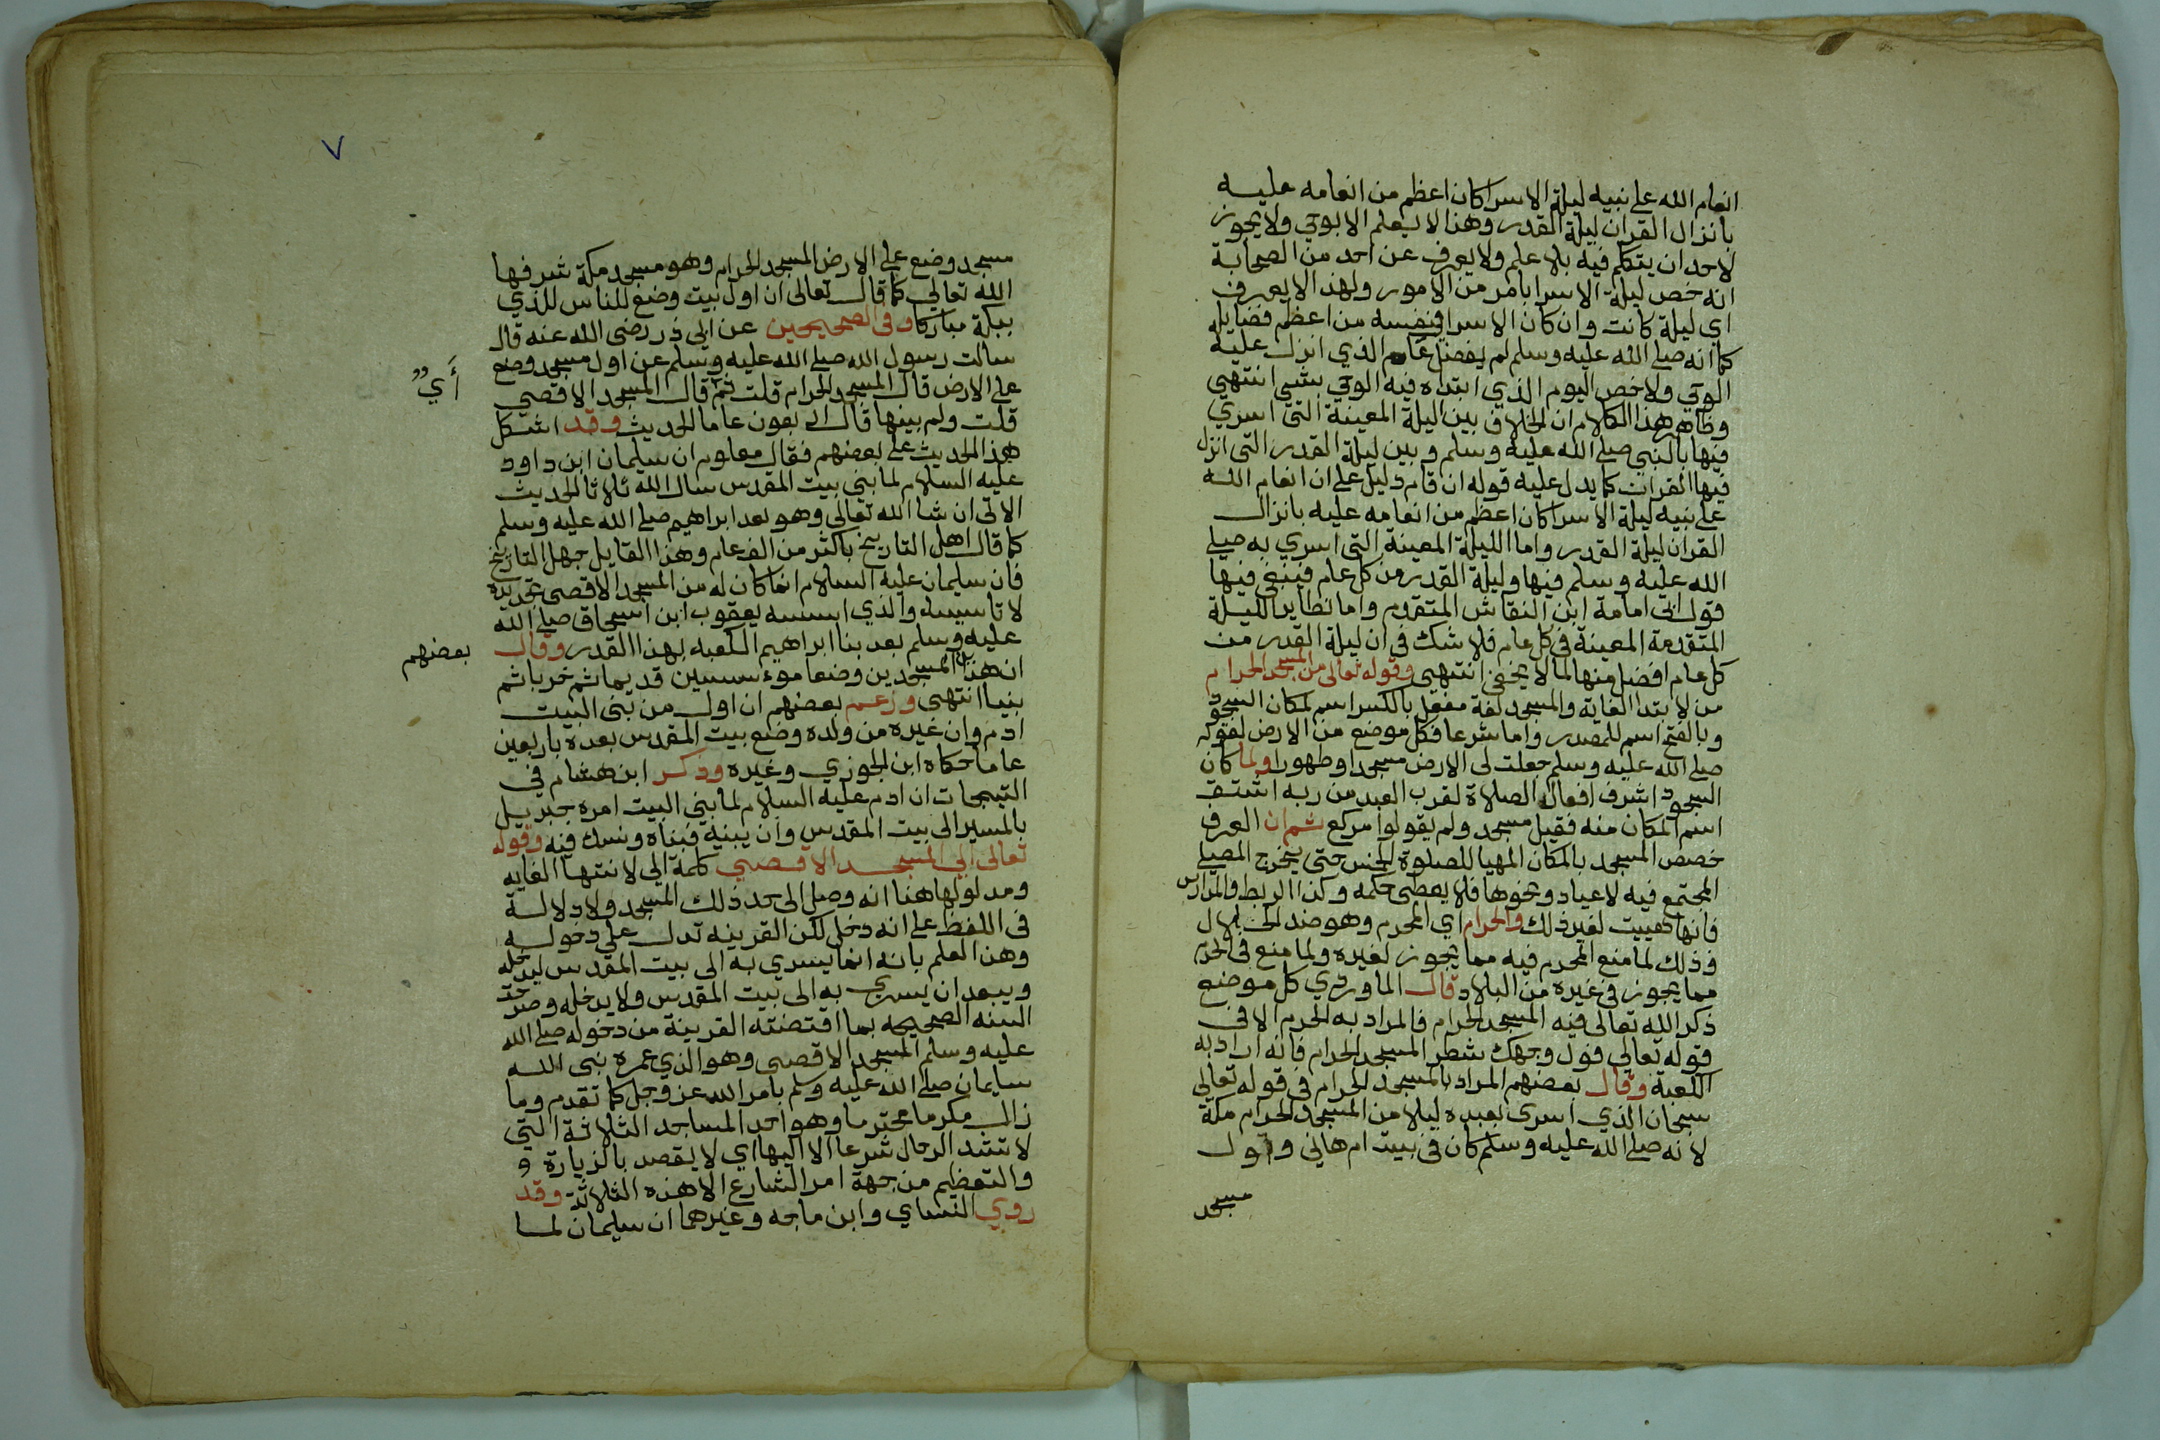 انعام الله على نبيه ليلة الاسرا كان اعظم من انعامه عليه
بانزال القران ليلة القدر وهذا لا يعلم الا بوحي ولا يجوز
لاحد ان يتكلم فيه بلا علم ولا يعرف عن احد من الصحابة
انه خص ليلة الاسرا بامر من الامور ولهذا لا يعرف
اي ليلة كانت وان كان الاسرا في نفسه من اعظم فضايله
كما انه صلى الله عليه وسلم لم يفضل عام الذي انزل عليه
الوحي ولا خص اليوم الذي ابتداه فيه الوحي بشي انتهي
وظاهر هذا الكلام ان الخلاف بين ليلة المعينة التي اسري
فيها بالنبي صلى الله عليه وسلم وبين ليلة القدر التي انزل
فيها القران كما يدل عليه قوله ان قام دليل على ان انعام الله
على نبيه ليلة الاسرا كان اعظم من انعامه عليه بانزال
القران ليلة القدر واما الليلة المعينة التي اسري به صلى
الله عليه وسلم فيها وليلة القدر من كل عام فينبغي فيها
قول ابي امامة ابن النقاش المتقدم واما نظاير الليلة
المتقدمة المعينة في كل عام فلا شك في ان ليلة القدر من
كل عام افضل منها لما لا يخفي انتهي وقوله تعالى من المسجد الحرام
من لابتدا الغاية والمسجد لغة مفعل بالكسر اسم لمكان السجود
وبالفتح اسم للمصدر واما شرعا فكل موضع من الارض لقوله
صلى الله عليه وسلم جعلت لى الارض مسجدا وطهورا ولما كان
السجود اشرف افعال الصلاة لقرب العبد من ربه اشتق
اسم المكان منه فقيل مسجد ولم يقولوا مركع ثم ان العرف
خصص المسجد بالمكان المهيا للصلوة الخمس حتى يخرج المصلي
المجتمع فيه لاعياد ونحوها فلا يعطى حكمه وكذا الربط والمدارس
فانها هييت لغير ذلك والحرام اي المحرم وهو ضد الحلال
وذلك لما منع المحرم فيه مما يجوز لغيره ولما منع في الحرم
مما يجوز في غيره من البلاد قال الماوردي كل موضع
ذكر الله تعالى فيه المسجد الحرام فالمراد به الحرم الا في
قوله تعالي فول وجهك شطر المسجد الحرام فانه اراد به
الكعبة وقال بعضهم المراد بالمسجد الحرام في قوله تعالى
سبحان الذي اسرى بعبده ليلا من المسجد الحرام مكة
لانه صلى الله عليه وسلم كان في بيت ام هاني واول
مسجد
٧
مسجد وضع على الارض المسجد الحرام وهو مسجد مكة شرفها
الله تعالي كما قال تعالى ان اول بيت وضع للناس للذي
ببكة مباركا وفي الصحيحين عن ابي ذر رضى الله عنه قال
سالت رسول الله صلى الله عليه وسلم عن اول مسجد وضع
على الارض قال المسجد الحرام قلت ثم قال المسجد الاقصي
أي
قلت ولم بينها قال اربعون عاما الحديث وقد اشكل
هذا الحديث على بعضهم فقال معلوم ان سليمان ابن داود
عليه السلام لما بني بيت المقدس سال الله ثلاثا الحديث
الاتي ان شا الله تعالي وهو بعد ابراهيم صلى الله عليه وسلم
كما قال اهل التاريخ باكثر من الف عام وهذا القايل جهل التاريخ
فان سليمان عليه السلام انما كان له من المسجد الاقصى تجديده
لا تاسيسه والذي اسسه يعقوب ابن اسحاق صلى الله
عليه وسلم بعد بنا ابراهيم الكعبه بهذا القدر وقال
بعضهم
ان هذا المسجدين وضعا موسسين قديما ثم خربا ثم
بنيا انتهى وزعم بعضهم ان اول من بنى البيت
ادم وان غيره من ولده وضع بيت المقدس بعده باربعين
عاما حكاه ابن الجوزي وغيره وذكر ابن هشام في
التيجان ان ادم عليه السلام لما بني البيت امره جبريل
بالمسير الى بيت المقدس وان يبنيه فبناه ونسك فيه وقوله
تعالى الي المسجد الاقصي كلمة الي لانتها الغايه
ومدلولها هنا انه وصل الى حد ذلك المسجد ولا دلالة
في اللفظ على انه دخل لكن القرينه تدل علي دخوله
وهذ العلم بانه انما يسري به الى بيت المقدس ليدخله
ويبعد ان يسري به الى بيت المقدس ولا يدخله وصرحت
السنه الصحيحه بما اقتضته القرينة من دخوله صلى الله
عليه وسلم المسجد الاقصى وهو الذي عمره نبى الله
سليمان صلى الله عليه وسلم بامر الله عز وجل كما تقدم وما
زال مكرما محترما وهو احد المساجد الثلاثة التي
لا تشد الرحال شرعا الا اليها اي لا يقصد بالزيارة و
والتعظيم من جهة امر الشارع الا هذه الثلاثة وقد
روي النساي وابن ماجه وغيرهما ان سليمان لما